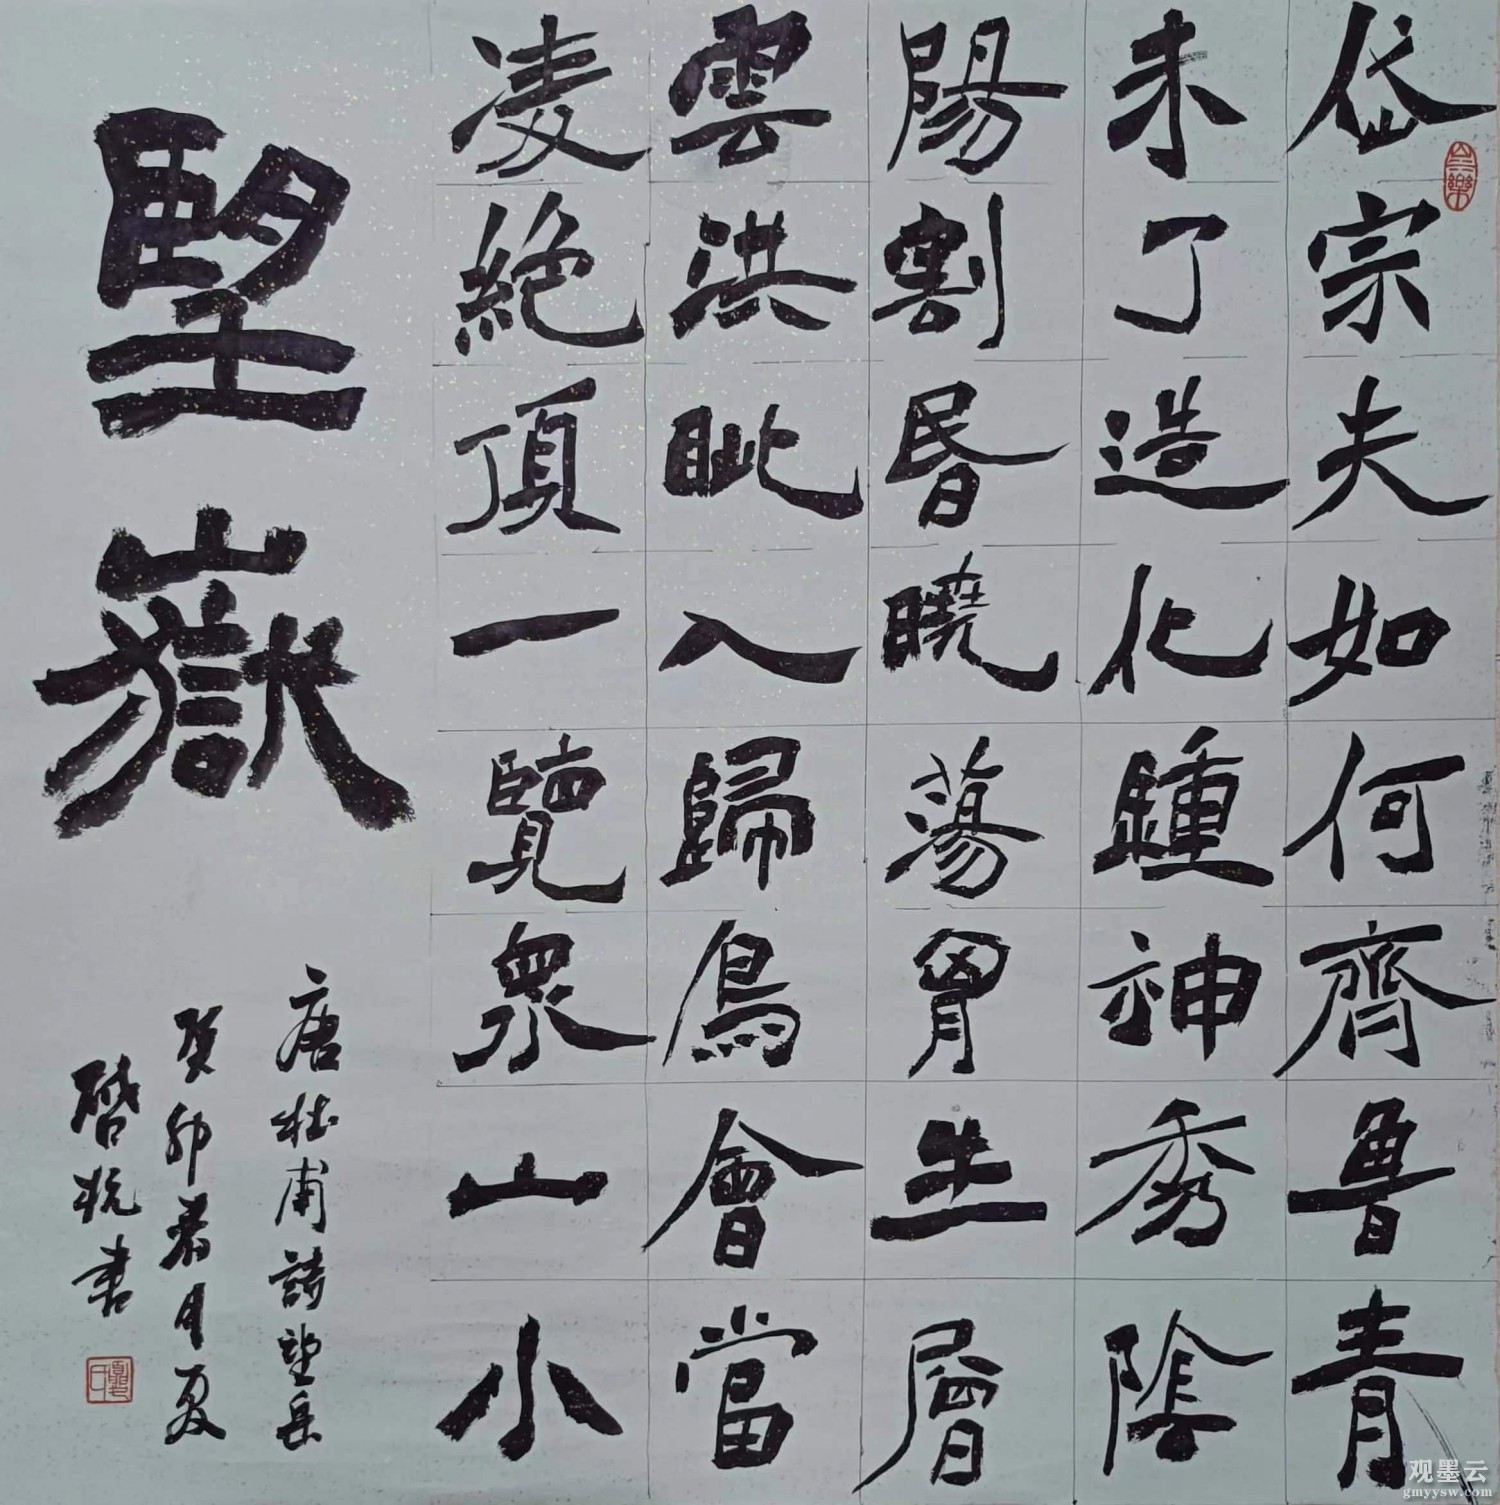 岱宗夫如何齊魯青
未了造化鍾神秀陰
陽割昏曉蕩胷生層
雲洪眦入歸鳥會當
凌絕頂一覽眾山小
望嶽
唐杜甫詩望岳
癸卯春月夏
啓杭書
夏氏
观墨云
gmyysw.com